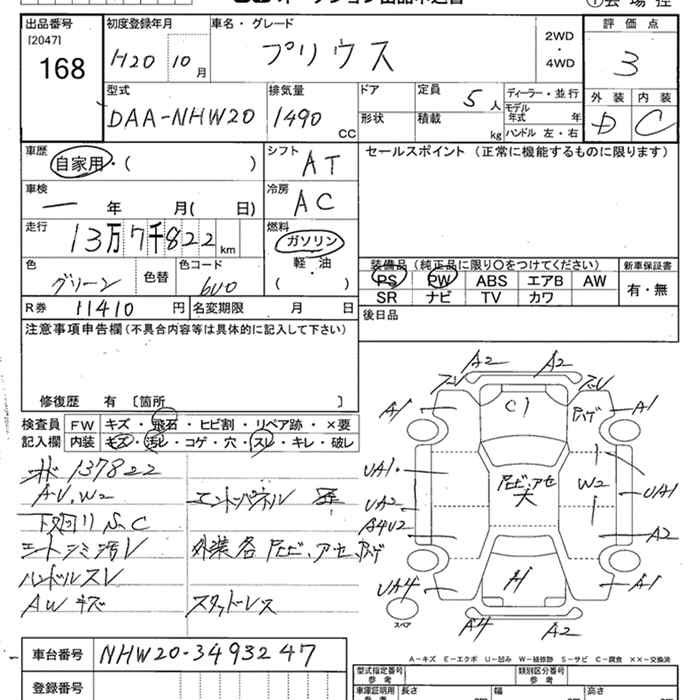 出品番号
[2047]
168
初度登録年月
H20 10月
車名・グレード
プリウス
2WD
・
4WD
評価点
3
型式
DAA-NHW20
排気量
1490 CC
ドア
形状
定員
5人
積載
kg
ディーラー・並行
モデル
年式 年
ハンドル 左・右
外装 内装
D C
車歴
自家用・( )
シフト
AT
セールスポイント (正常に機能するものに限ります)
車検
一 年 月( 日)
冷房
AC
走行
13万7千822km
燃料
ガソリン
軽・油
( )
色
グリーン
色替
色コード
6V0
装備品 (純正品に限り○をつけてください)
新車保証書
PS PW ABS エアB AW
有・無
SR ナビ TV カワ
R券 11410円
名変期限 月 日
後日品
注意事項申告欄(不具合内容等は具体的に記入して下さい)
修復歴 有 〔箇所 〕
検査員
記入欄
FW キズ・飛石・ヒビ割・リペア跡・×要
内装 キズ・汚レ・コゲ・穴・スレ・キレ・破レ
137822
AU、W2
下廻リ S、C
シート シミ 汚レ
ハンドルスレ
AWキズ
スタッドレス
A2 A2
A1 C1 A1
UA1 W2 UA1
UA2
A4U2 A2
UA4 H A1
A4 A2
スペア
車台番号 NHW20-3493247
登録番号
A-キズ E-エクボ U-凹み W-補修跡 S-サビ C-腐食 ××-交換済
型式指定番号
参考
類別区分番号
参考
車庫証明用
参考
長さ 幅 高さ